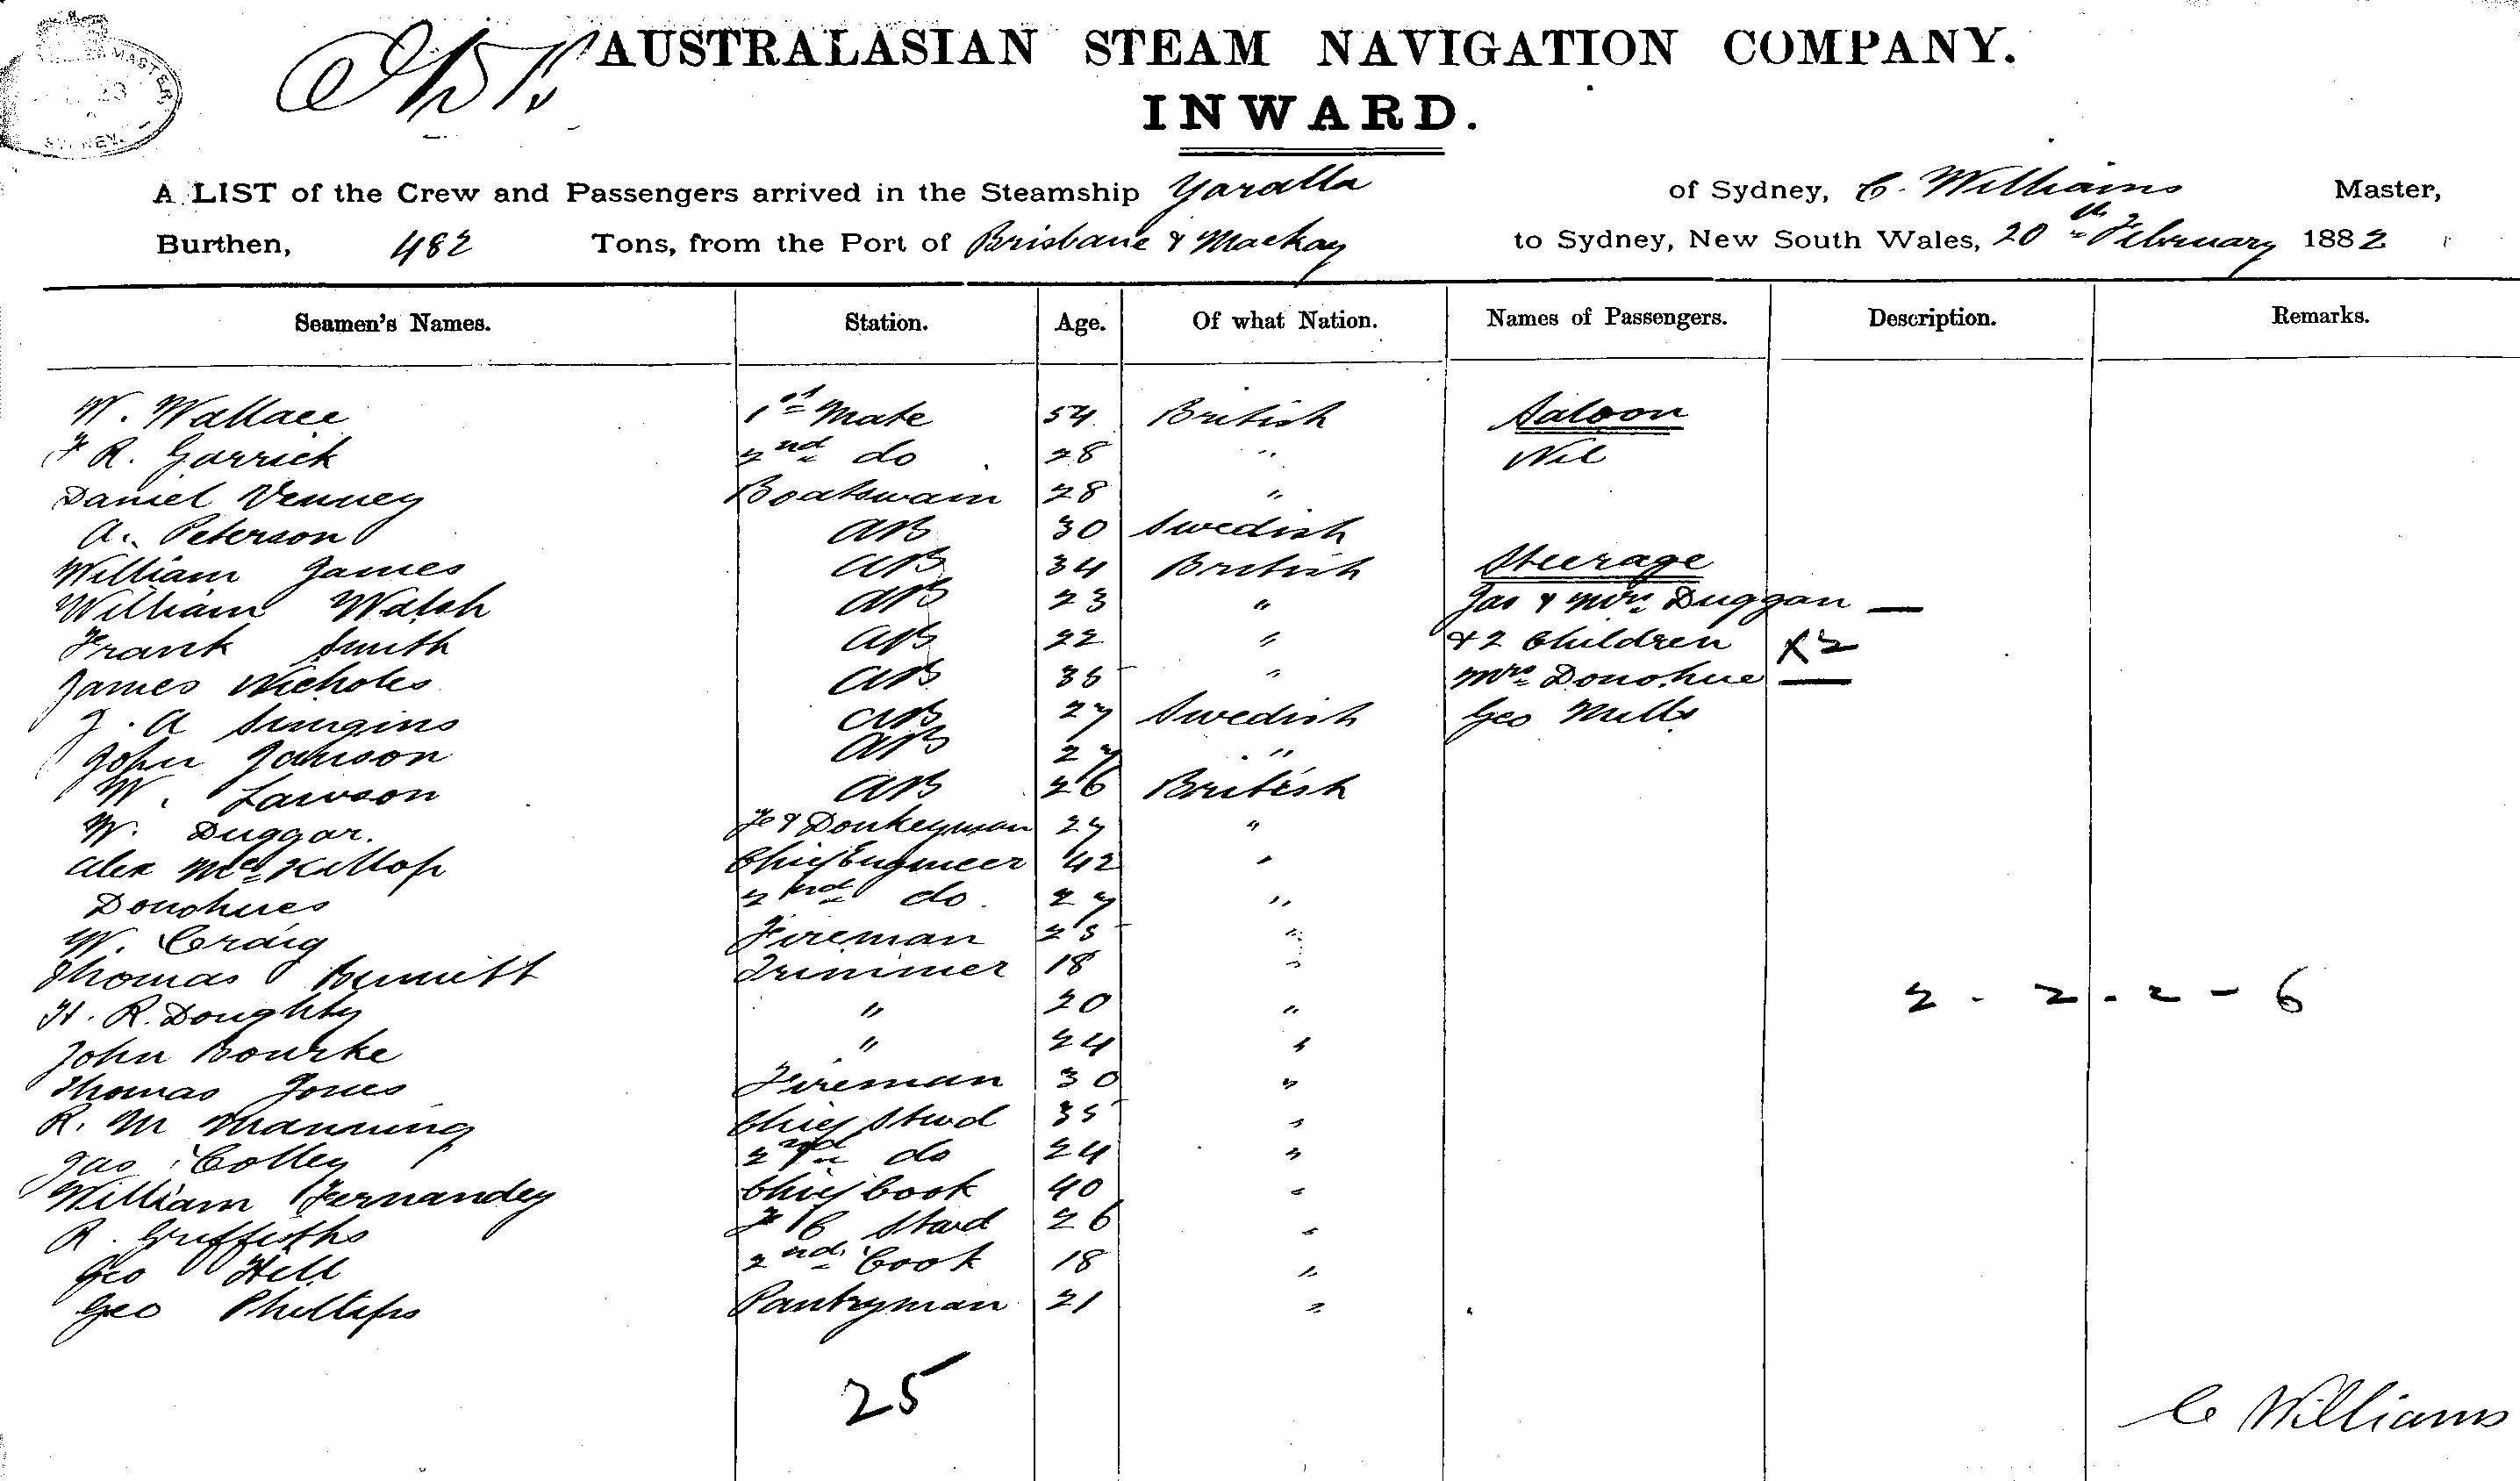 MASTER
SYDNEY.
AUSTRALASIAN STEAM NAVIGATION COMPANY.
INWARD.
A LIST of the Crew and Passengers arrived in the Steamship Yaralla of Sydney, C. Williams Master,
Burthen, 482 Tons, from the Port of Brisbane & Mackay to Sydney, New South Wales, 20th February 1882
Seamen's Names. Station. Age. Of what Nation. Names of Passengers. Description. Remarks.
W. Wallace 1st Mate 54 British Saloon
F R. Garrick 2nd do 28 " Nil
Daniel Venney Boatswain 28 "
A. Peterson AB 30 Swedish
William James AB 34 British Steerage
William Walsh AB 23 " Jas & Mrs Duggan —
Frank Smith AB 22 " & 2 Children X2
James Nicholes AB 35 " Mrs Donohue —
J. A AB 27 Swedish Geo Mills
John AB 27 "
W. Lawson AB 26 British
W. Duggar. Fo & Donkeyman 27 "
Alex McKillop Chief Engineer 42 "
Donohues 2nd do 27 "
W. Craig Fireman 25 "
Thomas Trimmer 18 "
H. R. Doughty " 20 " 2 - 2 - 2 - 6
John Bourke " 24 "
Thomas Jones Fireman 30 "
R. M Manning Chief Stwd 35 "
Jas Colley 2nd do 24 "
William Fernandey Chief Cook 40 "
R. Griffiths F C Stwd 26 "
Geo Hill 2nd Cook 18 "
Geo Phillips Pantryman 21 "
25
C Williams